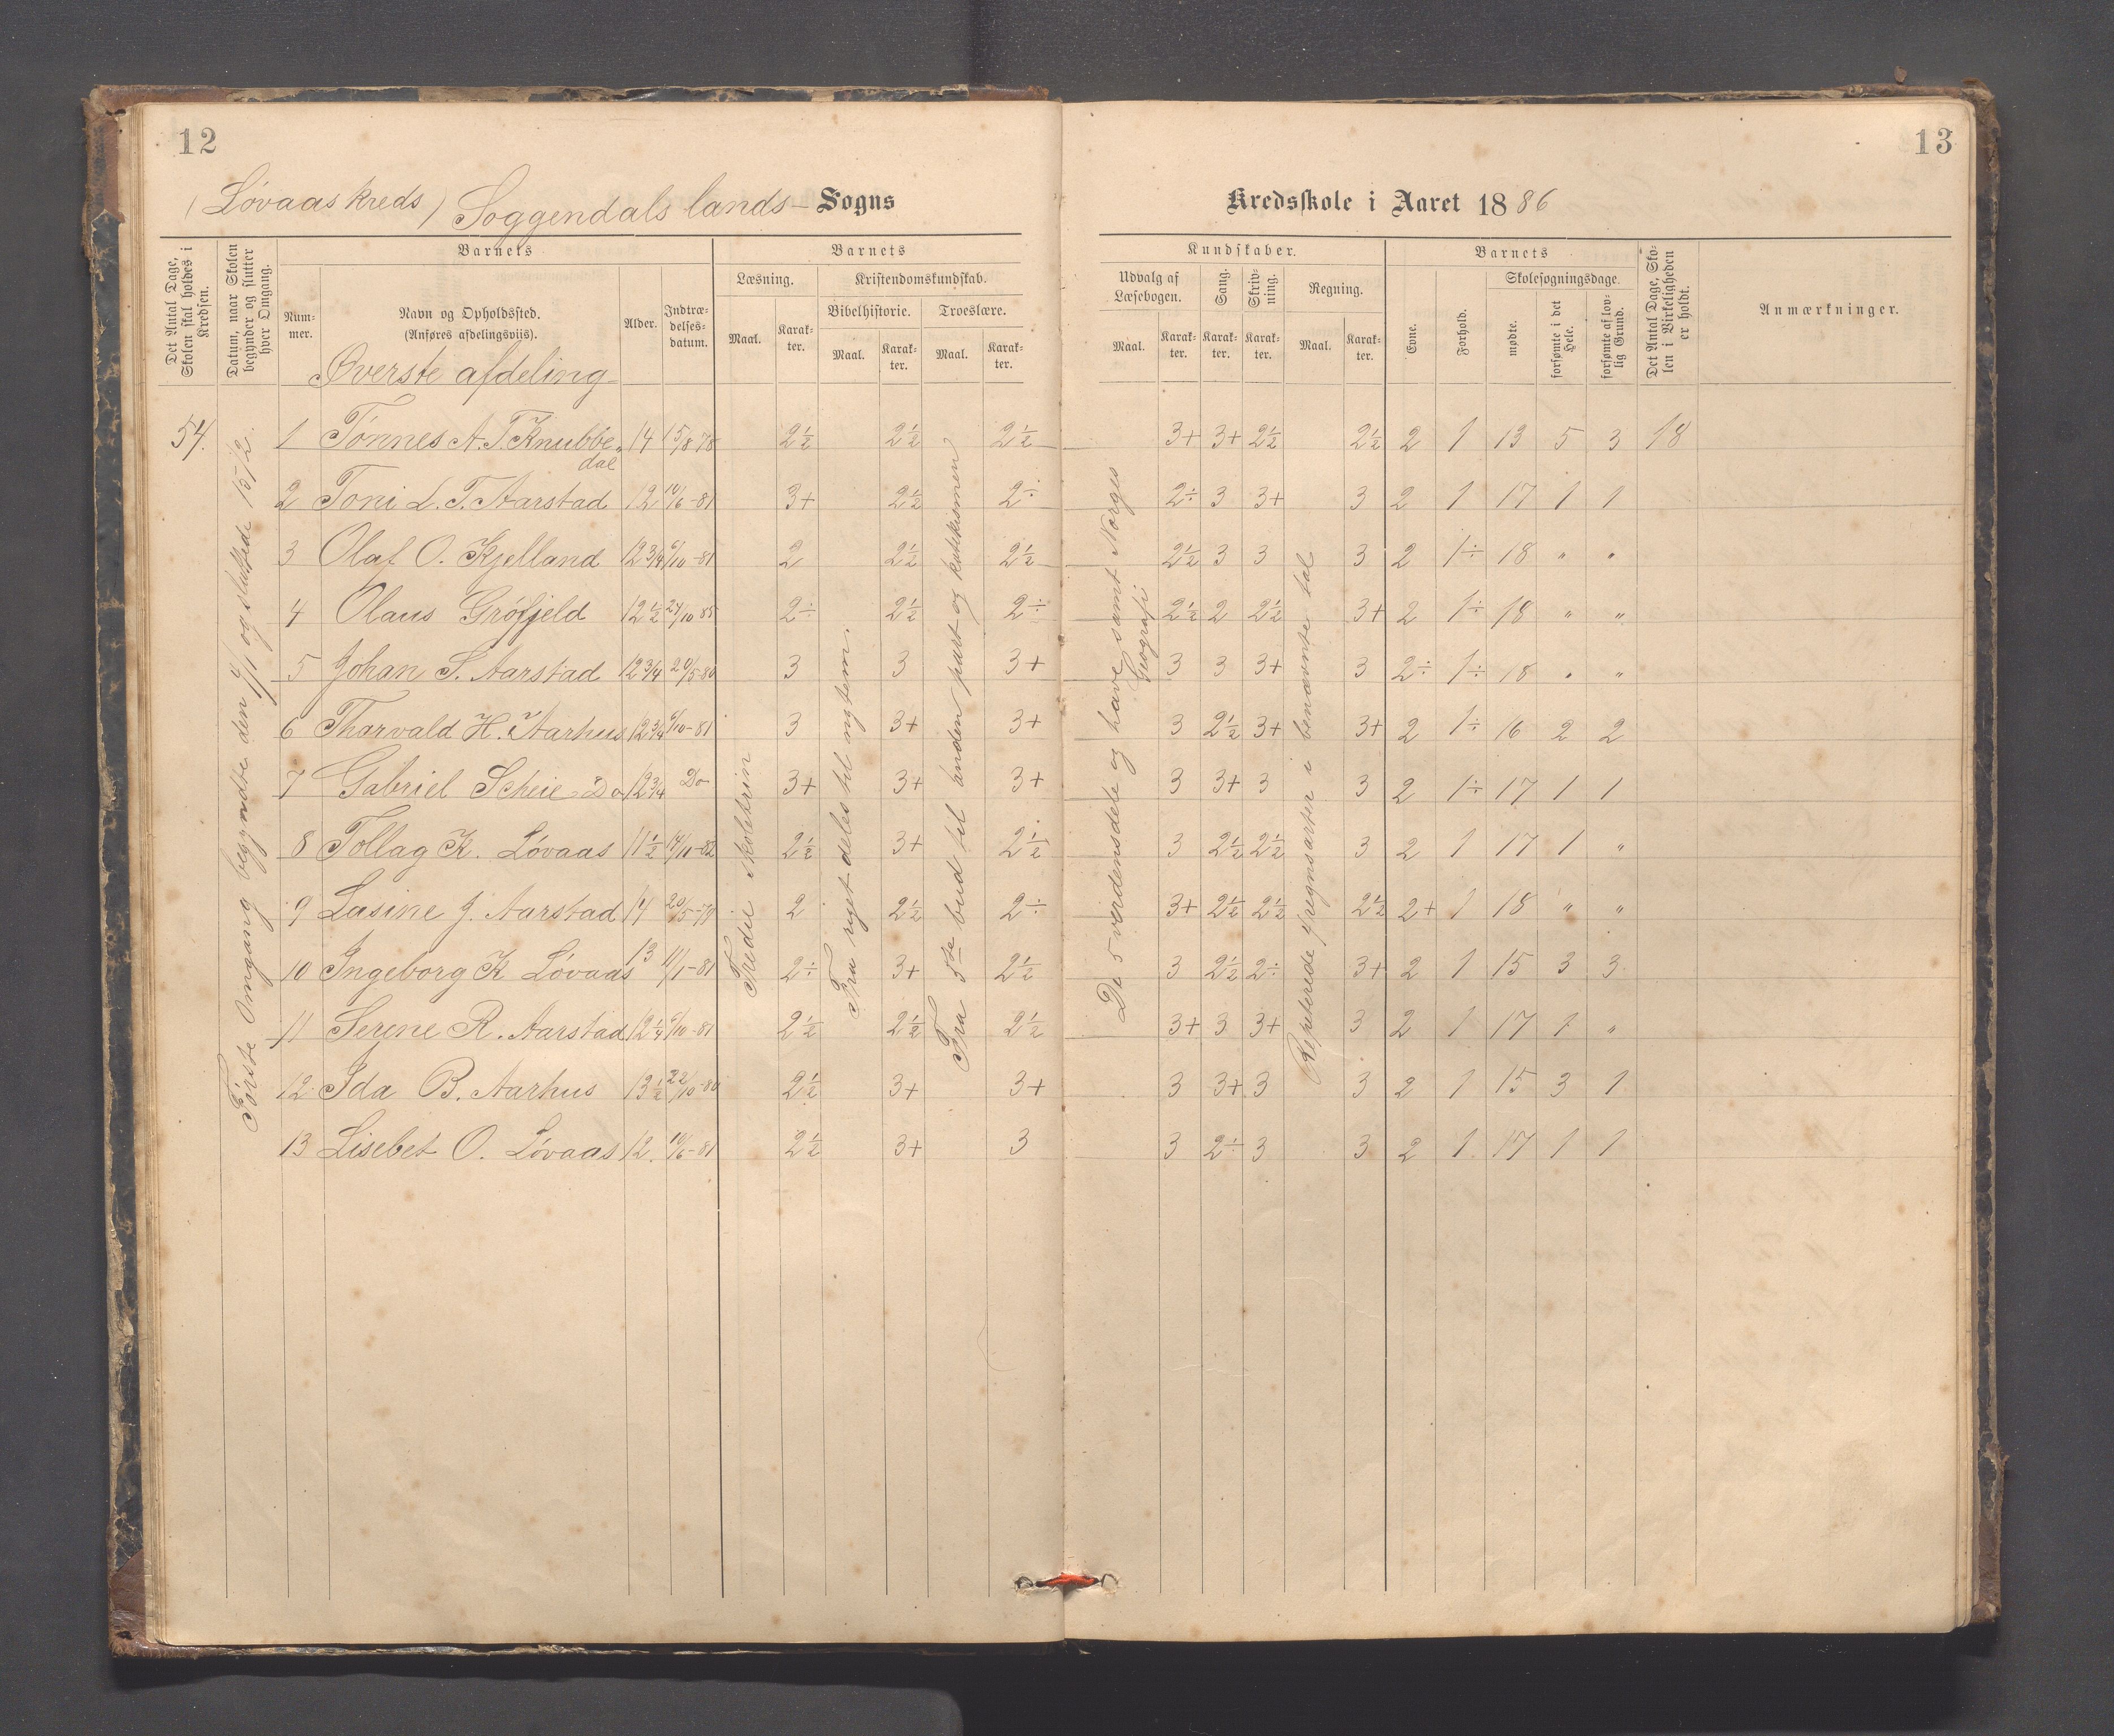 12
(Løvaas kreds) Soggendals lands- Sogns
Det Antal Dage, Skolen skal holdes i Kredsen.
Datum, naar Skolen begynder og slutter hver Omgang.
Barnets
Num-mer.
Navn og Opholdssted. (Anføres afdelingsviis).
Alder.
Indtræ-delses-datum.
Barnets
Læsning.
Kristendomskundskab.
Bibelhistorie. Troeslære.
Maal. Karak-ter. Maal. Karak-ter. Maal. Karak-ter.
Øverste afdeling
54.
Første Omgang begyndte den og sluttede 13/2.
1 Tønnes A. T. Knubbe-dal 14 15/8 78 2½ 2½ 2½
2 Toni L. T. Aarstad 12 10/6-81 3+ 2½ 2÷
3 Olaf O. Kjelland 12¾ 6/10-81 2 2½ 2½
4 Olaus Grøsfjeld 12½ 24/10 85 2÷ 2½ 2÷
5 Johan S. Aarstad 12¾ 20/5-80 3 3 3+
6 Tharvald H. Aarhus 12¾ 6/10-81 3 3+ 3+
7 Gabriel Scheie Do 12¾ Do 3+ 3+ 3+
8 Tollag K. Løvaas 11½ 14/11-82 2½ 3+ 2½
9 Lasine J. Aarstad 14 20/5-79 2 2½ 2÷
10 Ingeborg K Løvaas 13 11/1-81 2÷ 3+ 2½
11 Serene R. Aarstad 12¼ 6/10-81 2½ 2½ 2½
12 Ida B. Aarhus 13½ 22/10-80 2½ 3+ 3+
13 Lisebet O. Løvaas 12. 10/6-81 2½ 3+ 3
Tredie skoletrin
Fra riget deles til nytem.
Fra 5te bud til anden part og katekismen
13
Kredsskole i Aaret 1886
Kundskaber.
Udvalg af Læsebogen.
Sang.
Skriv-ning.
Regning.
Maal. Karak-ter. Karak-ter. Karak-ter. Maal. Karak-ter.
Barnets
Evne.
Forhold.
Skolesøgningsdage.
mødte.
forsømte i det Hele.
forsømte af lov-lig Grund.
Det Antal Dage, Sko-len i Virkeligheden er holdt.
Anmærkninger.
3+ 3+ 2½ 2½ 2 1 13 5 3 18
2÷ 3 3+ 3 2 1 17 1 1
2½ 3 3 3 2 1÷ 18 " "
2½ 2 2½ 3+ 2 1÷ 18 " "
3 3 3+ 3 2÷ 1÷ 18 " "
3 2½ 3+ 3+ 2 1÷ 16 2 2
3 3+ 3 3 2 1÷ 17 1 1
3 2½ 2½ 3 2 1 17 1 "
3+ 2½ 2½ 2½ 2+ 1 18 " "
3 2½ 2÷ 3+ 2 1 15 3 3
3+ 3 3+ 3 2 1 17 1 "
3 3+ 3 3 2 1 15 3 1
3 2÷ 3 3 2 1 17 1 1
De 5 verdensdele og have samt Norges
Geografi
Repeterede 4 regnsarter i benævnte tal